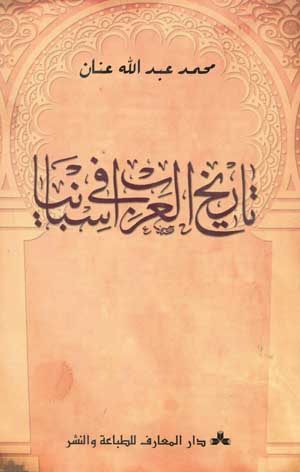 محمد عبد الله عنان
تاريخ العرب في اسبانيا
دار المعارف للطباعة والنشر